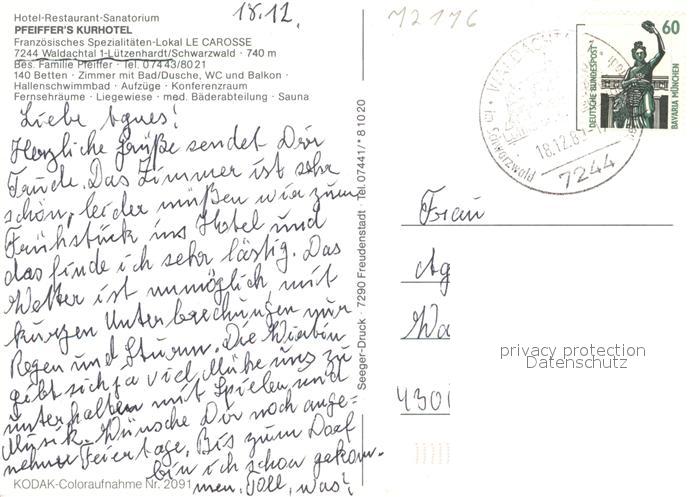 18.12.
M2176
Hotel-Restaurant-Sanatorium
PFEIFFER'S KURHOTEL
Französisches Spezialitäten-Lokal LE CAROSSE
7244 Waldachtal 1-Lützenhardt/Schwarzwald · 740 m
Bes. Familie Pfeiffer · Tel. 07443/8021
140 Betten · Zimmer mit Bad/Dusche, WC und Balkon ·
Hallenschwimmbad · Aufzüge · Konferenzraum
Fernsehräume · Liegewiese · med. Bäderabteilung · Sauna
Liebe Agnes!
Herzliche Grüße sendet Dir
Das Zimmer ist sehr
schön, leider müßen wir zum
Frühstück ins Hotel und
das finde ich sehr lästig. Das
Wetter ist unmöglich, mit
kurzen Unterbrechungen nur
Regen und Sturm. Die Wirtin
gibt sich ja viel Mühe uns zu
unterhalten mit Spielen und
Musik. Wünsche Dir noch ange=
nehme Feiertage. Bis zum
bin ich schon gekom-
men. Toll, was!
KODAK-Coloraufnahme Nr. 2091
Seeger-Druck · 7290 Freudenstadt · Tel. 07441/* 8 10 20
60
DEUTSCHE BUNDESPOST
BAVARIA MÜNCHEN
18.12.89
7244
Frau
Ag
Wa
430
privacy protection
Datenschutz